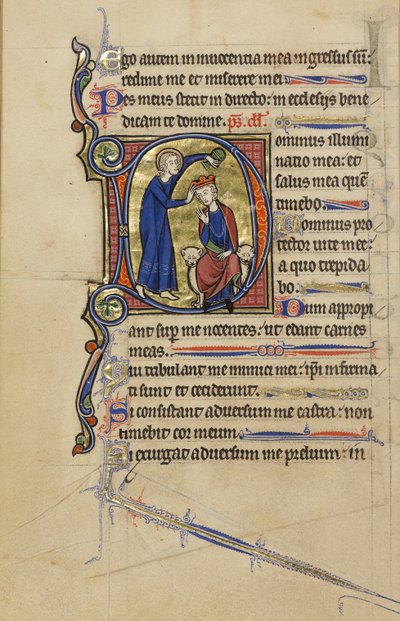 Ego autem in innocencia mea ingressus sū:
redime me et miserere mei.
Pes meus stetit in directo: in ecclesiis bene
dicam te domine.
Dominus illumi
natio mea: et
salus mea quē
timebo.
Dominus pro
tector vite mee:
a quo trepida
bo.
Dum appropi
ant sup me nocentes: ut edant carnes
meas.
Qui tribulant me inimici mei: ipi infirma
ti sunt et ceciderunt.
Si consistant adversum me castra: non
timebit cor meum
Si exurgat adversum me prelium: in